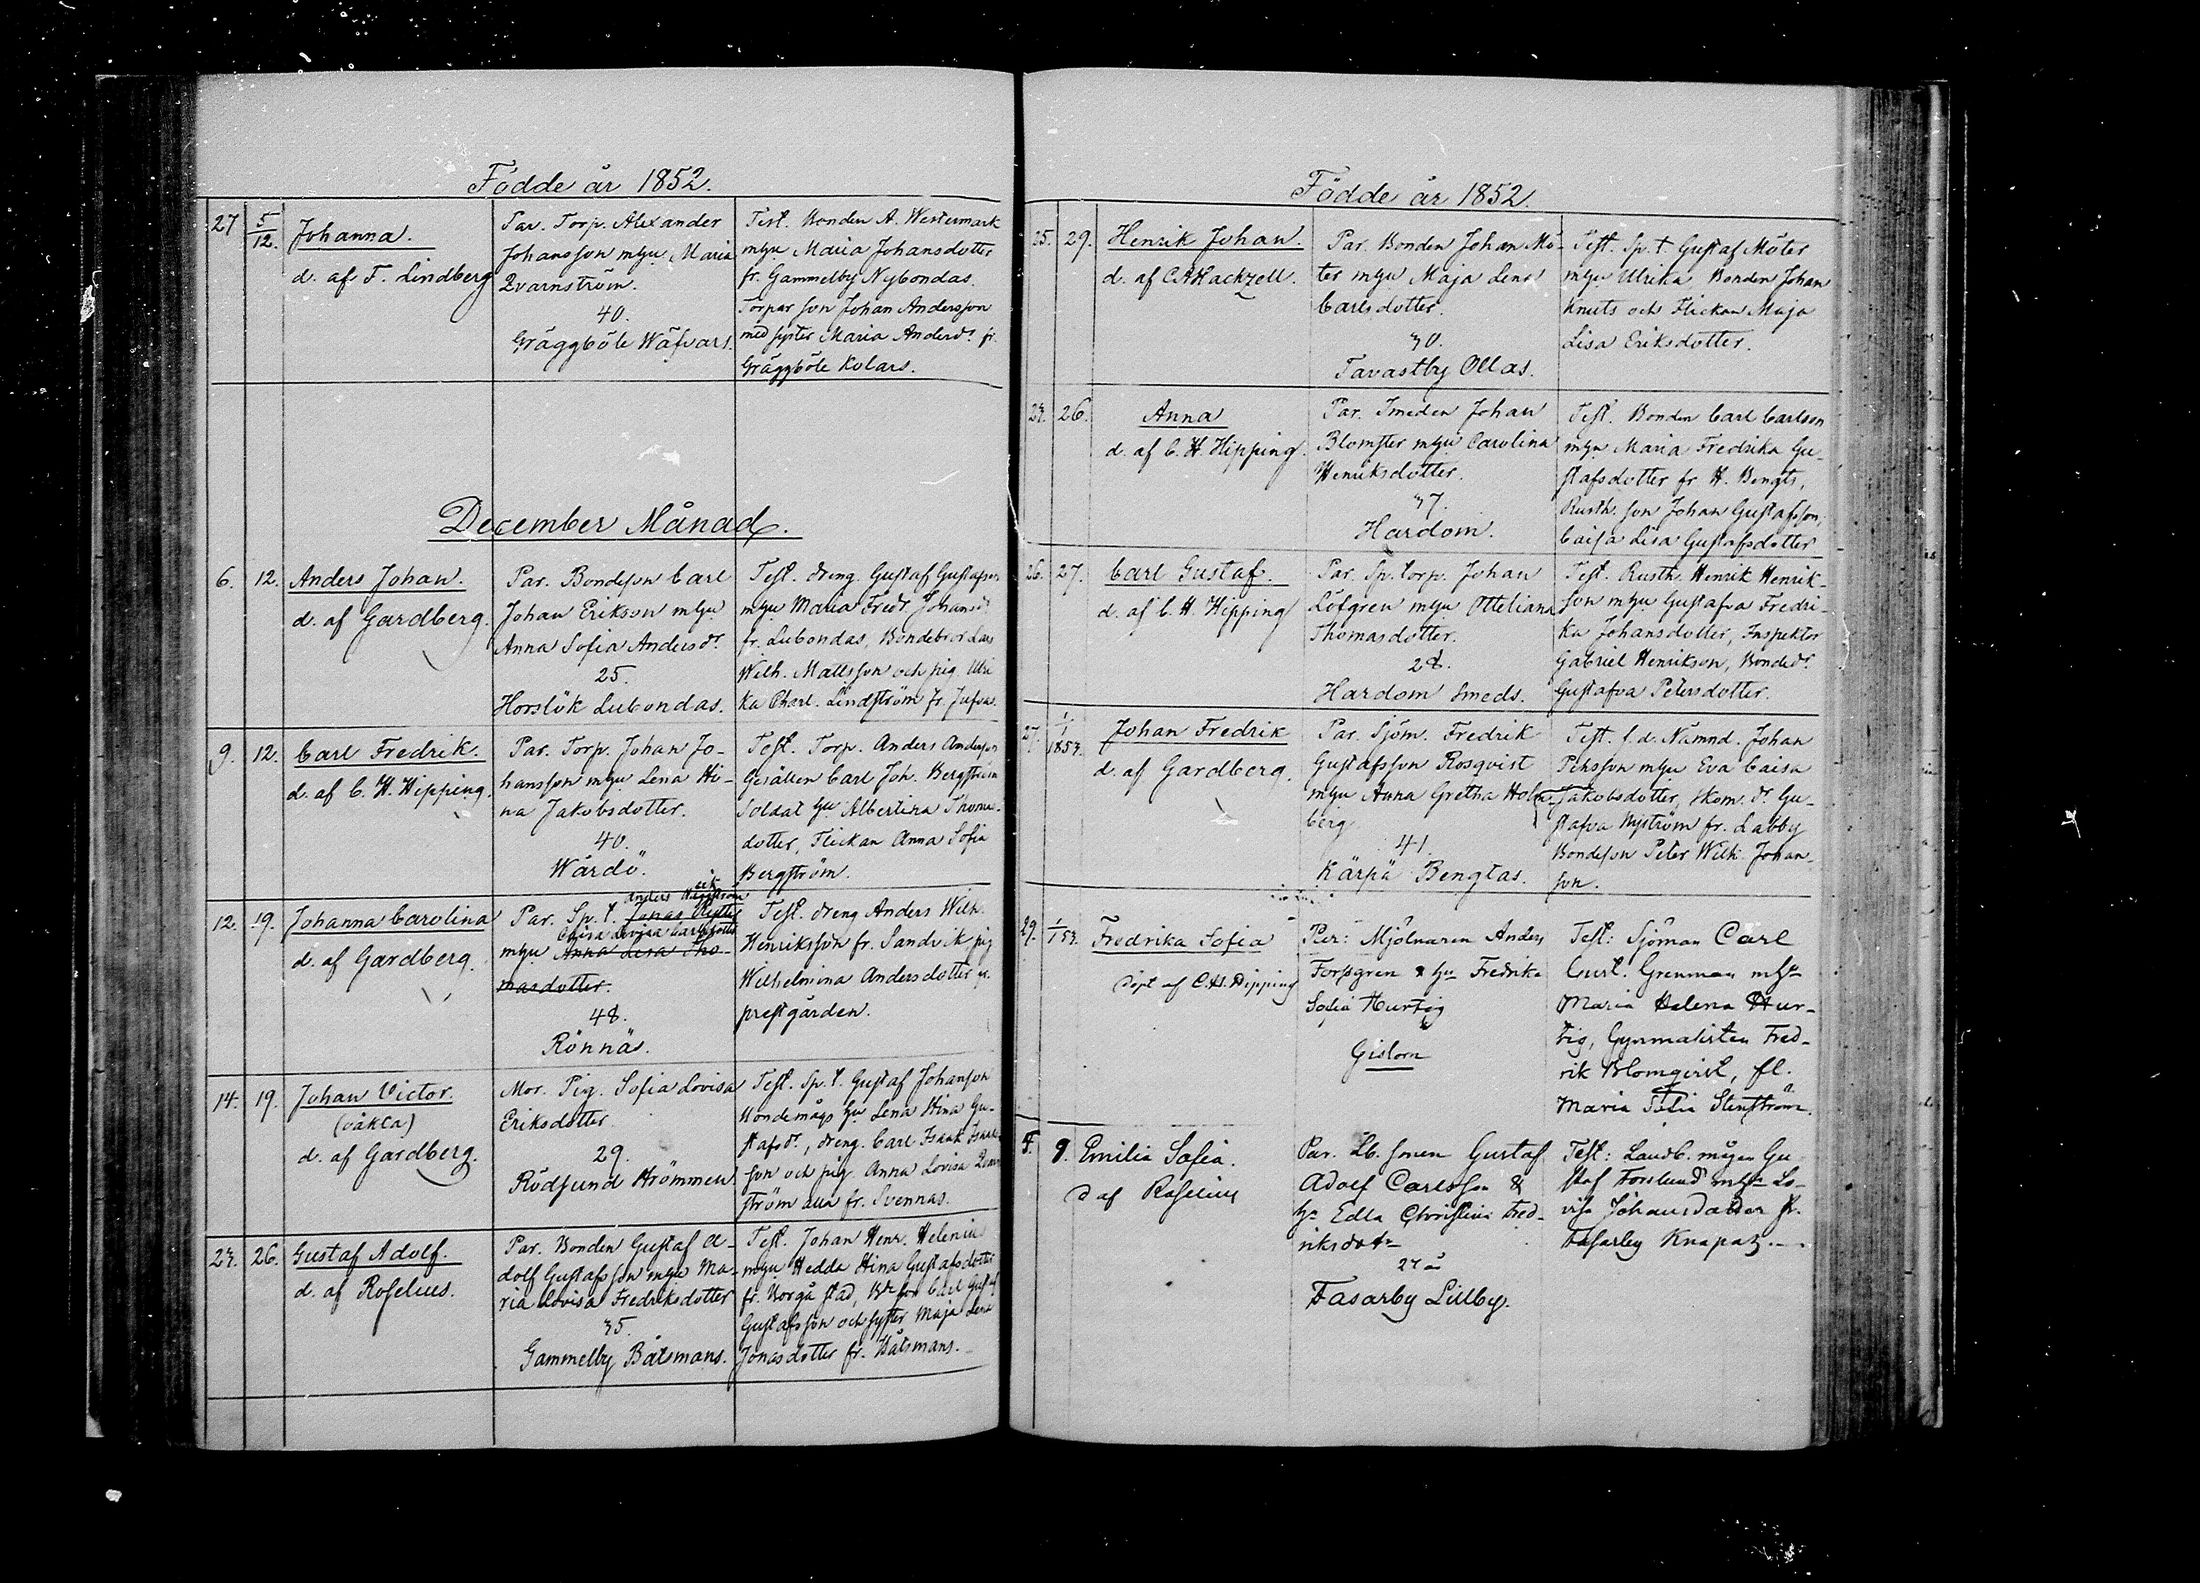 Födde år 1852.
27 5/12. Johanna.
d. af F. Lindberg
Par. Torp. Alexander
Johansson m hu Maria
Qvarnström.
40.
Gräggböle Wäfvars.
Test. Bonden A. Westermark
m hu Maria Johansdotter
fr. Gammelby Nybondas.
Torpar son Johan Andersson
med syster Maria Andersdr fr.
Gräggböle Kolars.
December Månad.
6. 12. Anders Johan.
d. af Gardberg.
Par. Bondeson Carl
Johan Erikson m hu
Anna Sofia Andersdr
25.
Horslök Lubondas.
Test. dreng. Gustaf Gustafson
m hu Maria Fredr. Johansdr
fr. Lubondas, Bondebror Lars
Wilh. Mattsson och pig. Ulri
ka Charl. Lindström fr. Jufvas.
9. 12. Carl Fredrik.
d. af C. H. Hipping.
Par. Torp. Johan Jo-
hansson m hu Lena Sti-
na Jakobsdotter.
40.
Wårdö.
Test. Torp. Anders Anderson
Gesällen Carl Joh. Bergström
Soldat hu Albertina Thomas
dotter, Flickan Anna Sofia
Bergström.
12. 19. Johanna Carolina
d. af Gardberg.
Anders
Par. Sp. t. Jonas
Caisa Lovisa Carlsdotter
m hu Anna Lisa Tho-
masdotter.
48.
Rönnäs.
Test. dreng Anders Wilh.
Henriksson fr. Sandvik pig
Wilhelmina Andersdotter fr.
prestgården.
14. 19. Johan Victor.
(oäkta)
d. af Gardberg.
Mor. Pig. Sofia Lovisa
Eriksdotter.
29.
Rödsund Strömmen.
Test. Sp. t. Gustaf Johanson
Bondemågs hu Lena Stina Gu-
stafsdr, dreng. Carl Isaak Isaak
son och pig. Anna Lovisa Qvarn
ström alla fr. Svennas.
23. 26. Gustaf Adolf.
d. af Roselius.
Par. Bonden Gustaf A-
dolf Gustafsson m hu Ma-
ria Lovisa Fredriksdotter
35.
Gammelby Båtsmans.
Test. Johan Henr. Helenius
m hu Hedda Stina Gustafsdotter
fr. Borgå stad, Bde son Carl Gustaf
Gustafsson och syster Maja Lena
Jonasdotter fr. Båtsmans.
Födde år 1852.
25. 29. Henrik Johan.
d. af C. A. Hackzell.
Par. Bonden Johan Mö-
ter m hu Maja Lena
Carlsdotter.
30.
Tavastby Ollas.
Test. Sp. t Gustaf Möter
m hu Ulrika Bonden Johan
Knuts och Flickan Maja
Lisa Eriksdotter.
23. 26. Anna
d. af C. H. Hipping.
Par. Smeden Johan
Blomster m hu Carolina
Henriksdotter.
37.
Hardom.
Test. Bonden Carl Carlson
m hu Maria Fredrika Gu-
stafsdotter fr H. Bengts,
Rusth. son Johan Gustafsson,
Caisa Lisa Gustafsdotter
26. 27. Carl Gustaf.
d. af C. H. Hipping
Par. Sp. torp. Johan
Löfgren m hu Otteliana
Thomasdotter.
28.
Hardom Smeds.
Test. Rusth. Henrik Henrik-
son m hu Gustafva Fredri-
ka Johansdotter, Inspektor
Gabriel Henrikson, Bondedr
Gustafva Petersdotter.
27. 1/1 1853. Johan Fredrik
d. af Gardberg.
Par. Sjöm. Fredrik
Gustafsson Rosqvist
m hu Anna Gretha Holm-
berg
41.
Kärpä Bengtas.
Test. f. d. Nämnd. Johan
Persson m hu Eva Caisa
Jakobsdotter, Skom. dr Gu-
stafva Nyström fr. Labby
Bondeson Peter Wilh. Johan-
son.
29. 1/1 53. Fredrika Sofia
Döpt af C. H. Hipping
Par: Mjölnaren Anders
Forsgren & hu Fredrika
Sofia Hurtig
Gislom
Test: Sjöman Carl
Gust. Grenman m hu
Maria Helena Hur-
tig, Gymnasisten Fred-
rik Blomqvist, fl.
Maria Sofia Stenström.
9. Emilia Sofia.
D af Roselius
Par. Lb. sonen Gustaf
Adolf Carlsson &
hu Edla Christina Fred-
riksdotr
27 å
Fasarby Lillby.
Test: Landb. mågen Gu
staf Forslund m hu Lo-
visa Johansdotter fr.
Fasarby Knapas.